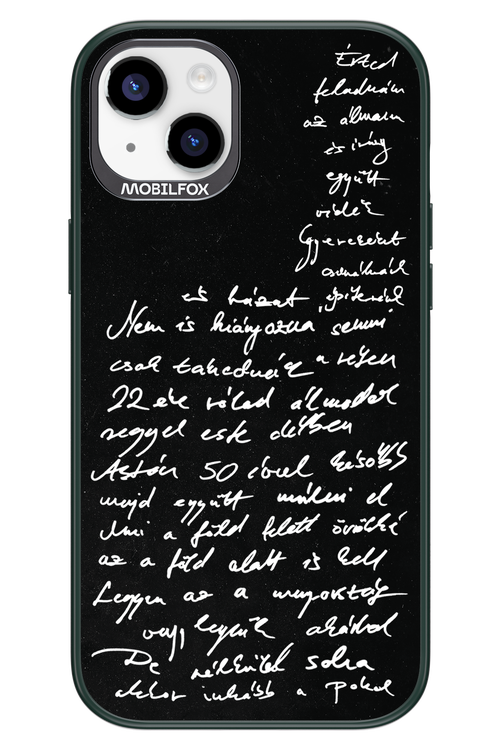 MOBILFOX
Érted
feladnám
az álmaim
és így
együtt
Gyerekeket
csinálnánk
és házat építenénk
Nem is hiányozna semmi
csak takednék a
22 éve rólad álmodok
reggel este délben
Aztán 50 évvel később
majd együtt múlni el
Ami a föld felett örökké
az a föld alatt is kell
Legyen az a mennyország
vagy legyünk akárhol
De nélküled soha
akkor inkább a Pokol